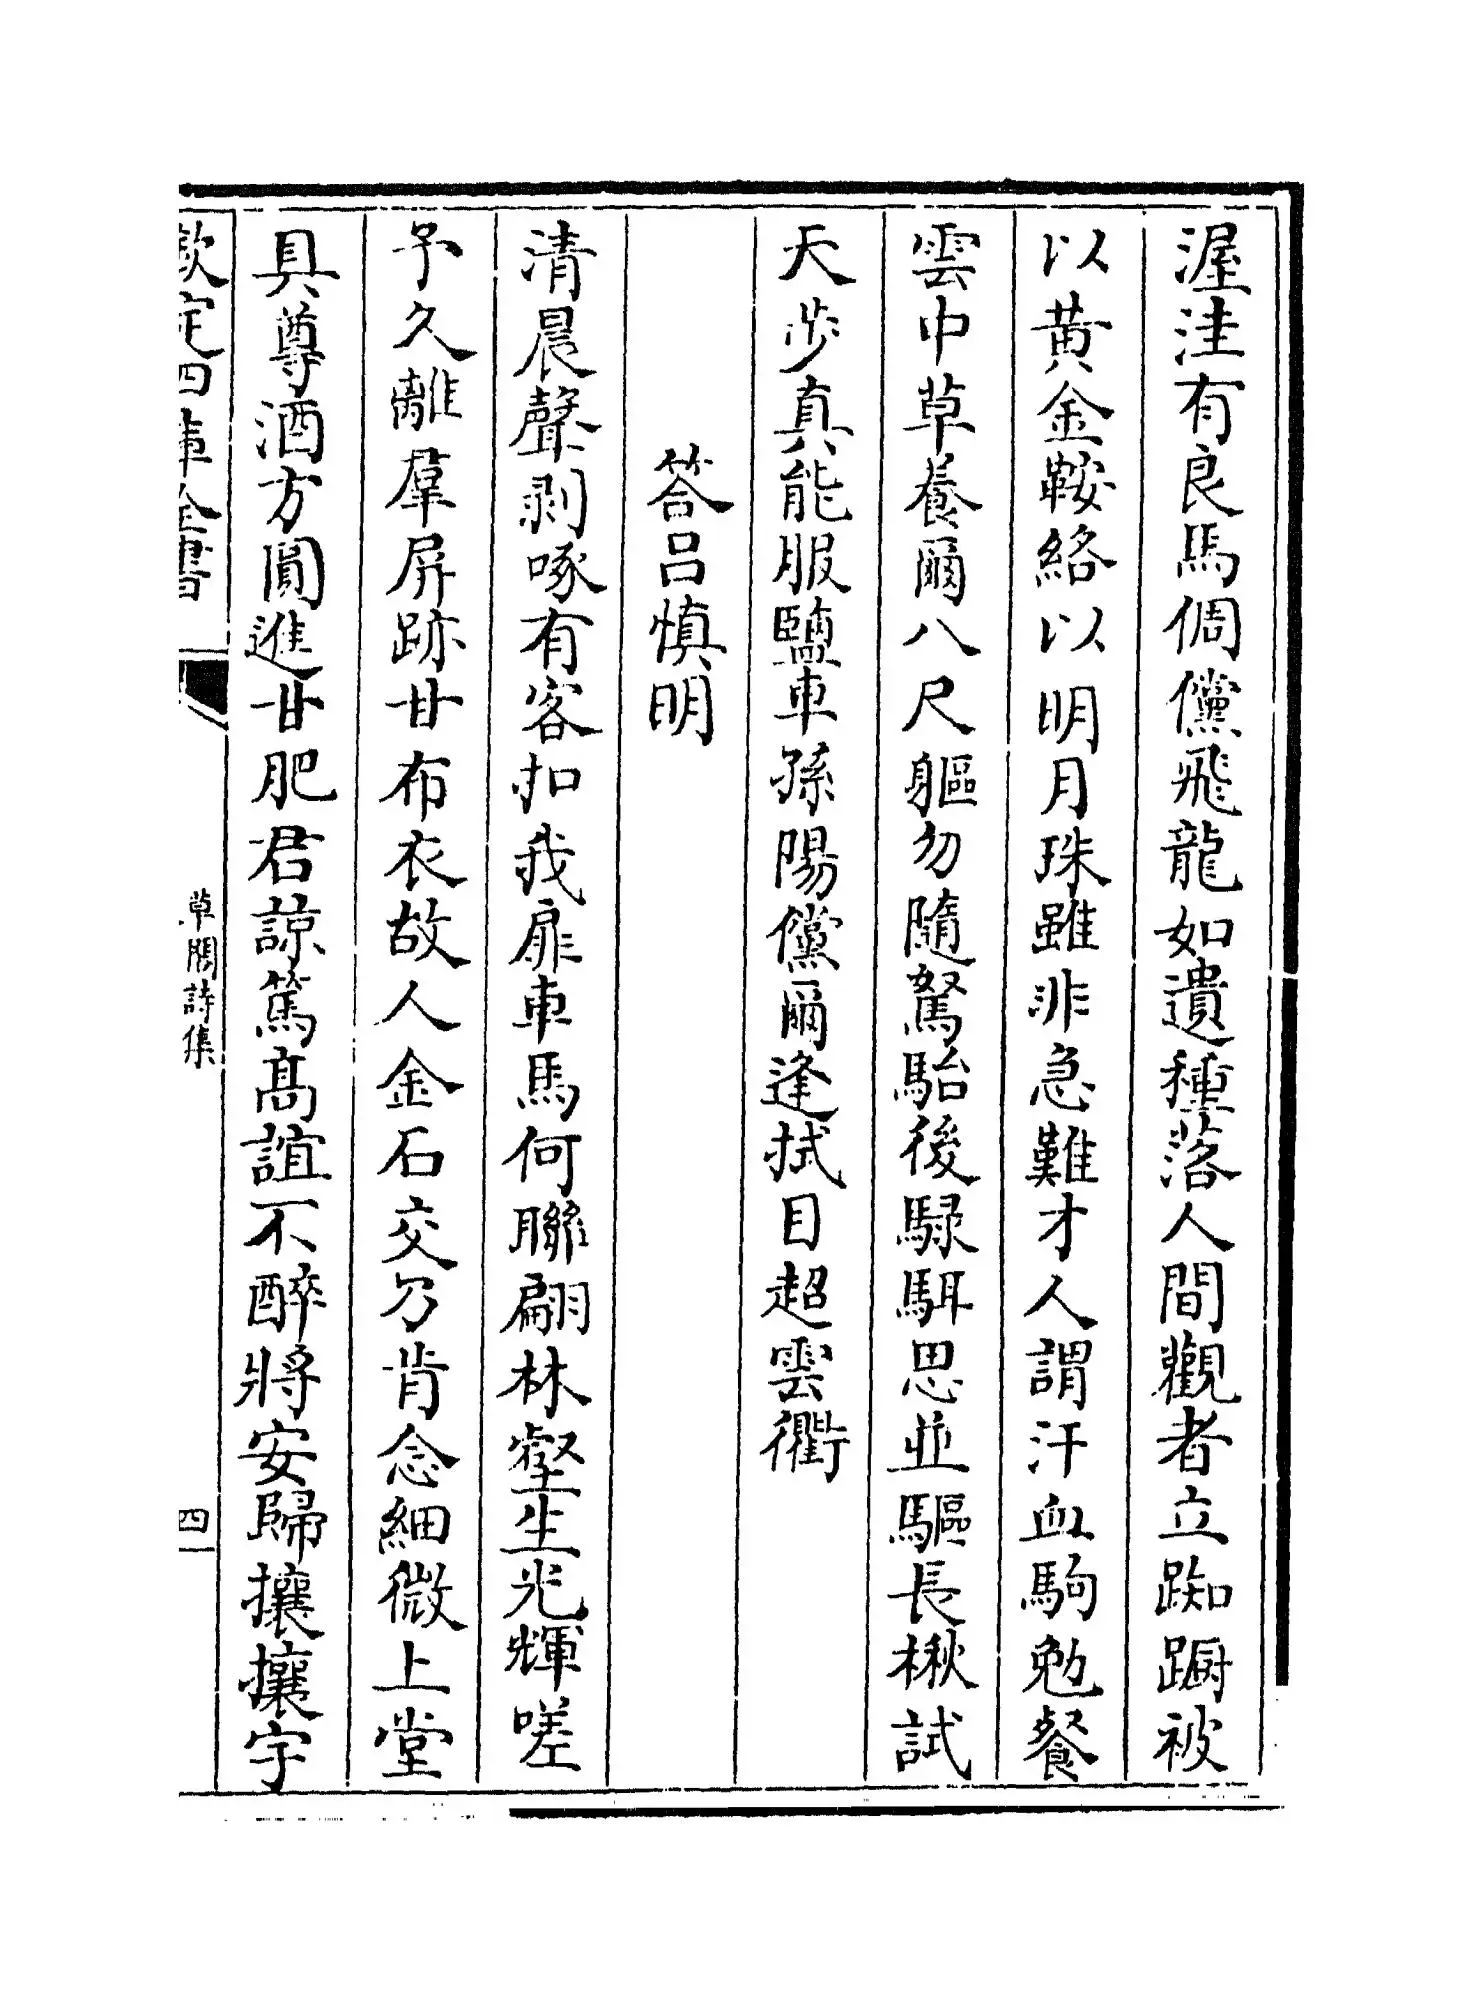 渥洼有良馬倜儻飛龍如遺種落人間觀者立踟蹰被
以黄金鞍絡以明月珠雖非急難才人謂汗血駒勉餐
雲中草養爾八尺軀勿隨駑駘後騄駬思並驅長楸試
天步真能服鹽車孫陽儻爾逢拭目超雲衢
答呂慎明
清晨聲剥啄有客扣我扉車馬何聯翩林壑生光輝嗟
予久離羣屏跡甘布衣故人金石交乃肯念細微上堂
具尊酒方圓進甘肥君諒篤髙誼不醉將安歸攘攘宇
欽定四庫全書
草閣詩集
四